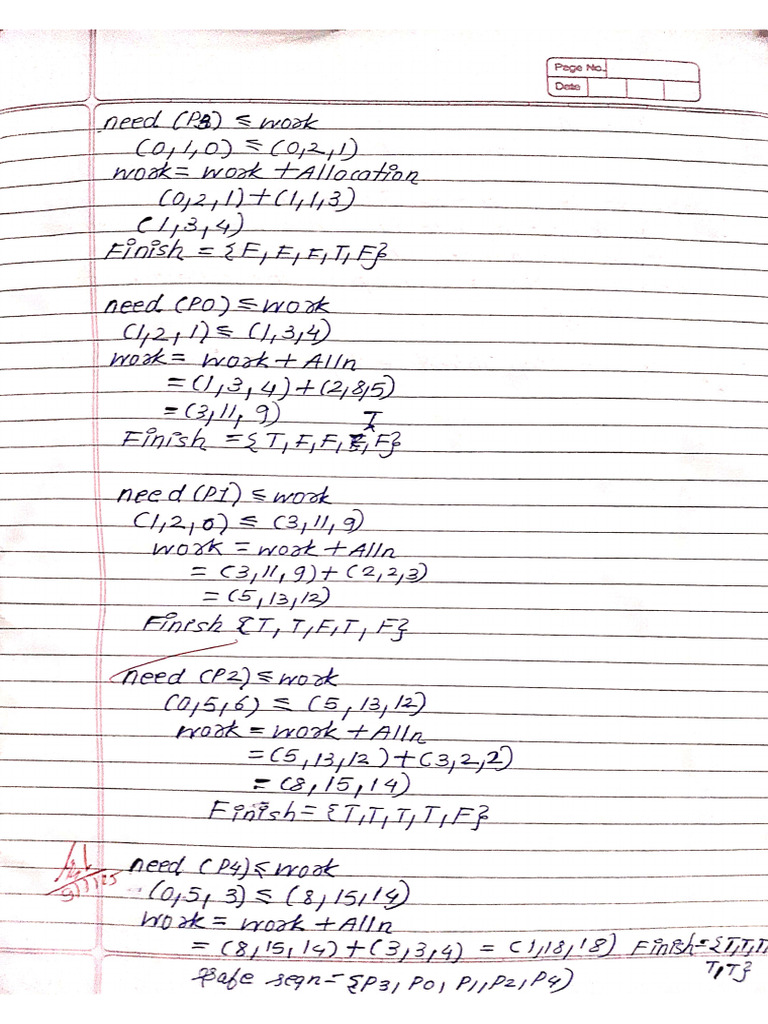 Page No.
Date
need (P3) ≤ work
(0,1,0) ≤ (0,2,1)
work = work + Allocation
(0,2,1) + (1,1,3)
(1,3,4)
Finish = {F, F, F, T, F}
need (P0) ≤ work
(1,2,1) ≤ (1,3,4)
work = work + Alln
= (1,3,4) + (2,8,5)
= (3,11,9)
T
Finish = {T, F, F, F, F}
need (P1) ≤ work
(1,2,0) ≤ (3,11,9)
work = work + Alln
= (3,11,9) + (2,2,3)
= (5,13,12)
Finish {T, T, F, T, F}
need (P2) ≤ work
(0,5,6) ≤ (5,13,12)
work = work + Alln
= (5,13,12) + (3,2,2)
= (8,15,14)
Finish = {T, T, T, T, F}
need (P4) ≤ work
(0,5,3) ≤ (8,15,14)
work = work + Alln
= (8,15,14) + (3,3,4) = (1,18,18) Finish = {T,T,T
T, T}
Safe seqn = {P3, P0, P1, P2, P4)